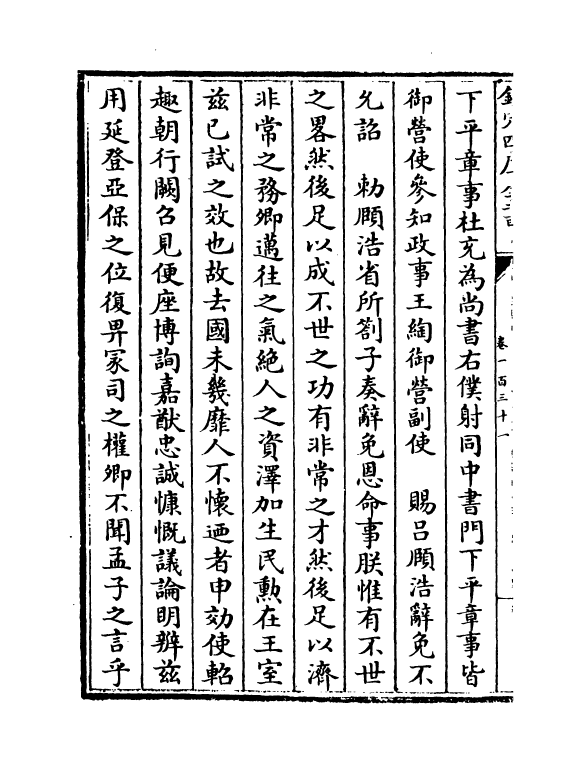 下平章事杜充為尚書右僕射同中書門下平章事皆
御營使參知政事王綯御營副使　賜呂頤浩辭免不
允詔　勅頤浩省所劄子奏辭免恩命事朕惟有不世
之畧然後足以成不世之功有非常之才然後足以濟
非常之務卿邁往之氣絶人之資澤加生民勲在王室
兹已試之效也故去國未幾靡人不懷迺者申効使軺
趣朝行闕召見便座博詢嘉猷忠誠慷慨議論明辨兹
用延登亞保之位復畀冢司之權卿不聞孟子之言乎
卷一百三十一